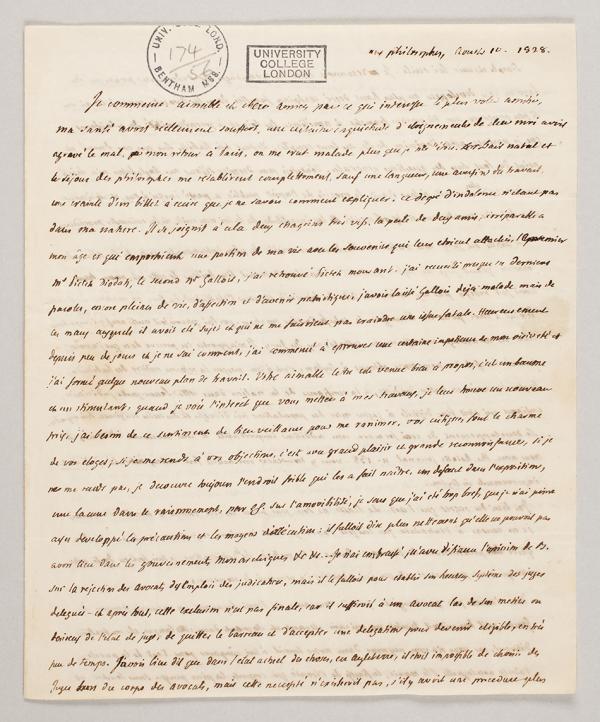 UNIV. COLL. LOND.
174
BENTHAM MSS.
UNIVERSITY
COLLEGE
LONDON
aux philosophes, Aoust 10 - 1828.
Je commence aimable et chere amie par ce qui interesse le plus votre amitié,
ma santé avoit réellement souffert, une certaine inquiétude d'éloignement de leur avis avoit
agravé le mal, à mon retour à Paris, on me crut malade plus que je n'étois. natal et
le séjour des philosophes me rétablirent complettement, sauf une langueur, une aversion du travail,
une crainte d'un billet à écrire que je ne savois comment expliquer; ce degré d'indolence n'étant pas
dans ma nature. Il se joignit à cela deux chagrins très vifs, la perte de deux amis, irréparable à
mon âge et qui emportoient une portion de ma vie avec les souvenirs qui leur étoient attachés, le premier
Mr Pictet Diodati, le second Mr Gallois, j'ai retrouvé Pictet mourant, j'ai recueilli presque ses dernieres
paroles, encore pleines de vie, d'affection et d'avenir patriotique, j'avois laissé Gallois déja malade mais de
les maux auxquels il avoit été sujet et qui ne me faisoient pas craindre une issue fatale. Heureusement
depuis peu de jours et je ne sai comment, j'ai commencé à éprouver une certaine impatience de mon oisiveté et
j'ai formé quelque nouveau plan de travail. Votre aimable lettre est venue bien à propos, c'est un baume
et un stimulant, quand je vois l'interet que vous mettez à mes travaux, je leur trouve un nouveau
prix, j'ai besoin de ce sentiment de bienveillance pour me ranimer, vos critiques sont le charme
de vos éloges; si je me rends à vos objections, c'est avec grand plaisir et grande reconnoissance, si je
ne me rends pas, je découvre toujours l'endroit foible qui les a fait naître, un defaut dans l'exposition,
une lacune dans le raisonnement, sur l'amovibilité, je sens que j'ai été trop bref, que je n'ai point
assez developpé les précautions et les moyens d'exécution: il falloit dire plus nettement qu'elle ne pouvoit pas
avoir lieu dans les gouvernements monarchiques &c &c - Je n'ai l'opinion de B.
sur la rejection des avocats de l'emploi des judicatures, mais il le falloit pour établir son heureux système des juges
delegués - et après tout, cette exclusion n'est pas finale, car il suffiroit à un avocat las de son metier ou
desireux de l'etat de juge, de quitter le barreau et d'accepter une delegation pour devenir eligible, en très
peu de temps. J'avois bien dit que dans l'etat actuel des choses, en Angleterre, il étoit impossible de choisir des
Juges hors du corps des avocats, mais cette necessité n'existeroit pas, s'il y avoit une procedure plus